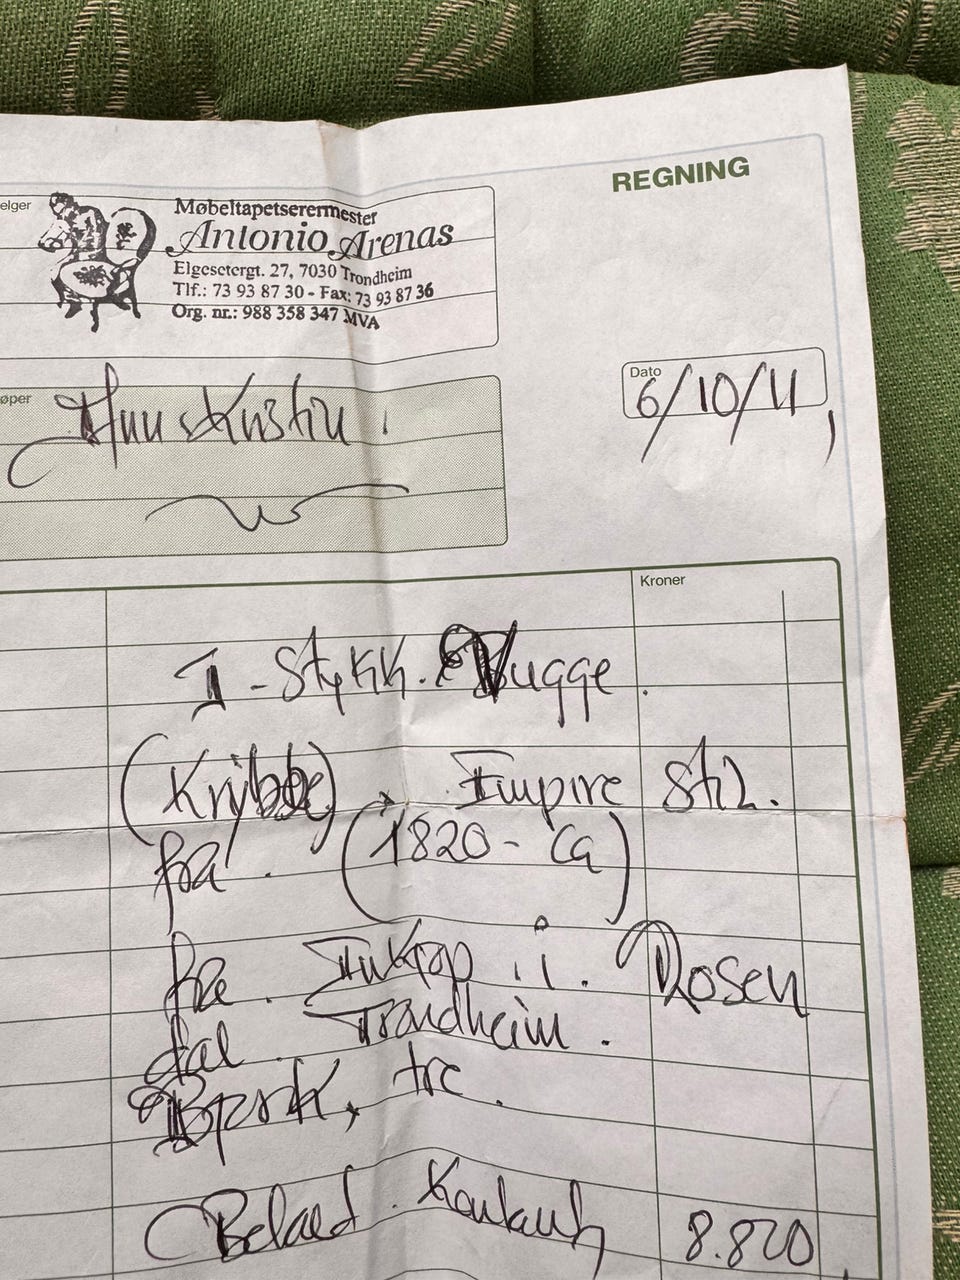 REGNING
elger
Møbeltapetserermester
Antonio Arenas
Elgesetergt. 27, 7030 Trondheim
Tlf.: 73 93 87 30 - Fax: 73 93 87 36
Org. nr.: 988 358 347 MVA
Dato
6/10/11,
øper
Ann Kristin.
Kroner
1 - Stykk. Vugge.
(Krybbe). Empire Stil.
fra. (1820 - Ca)
fra. Innkjøp i. Rosen
dal. Trondheim.
Bjørk, tre.
Betaed. Kontant 8.820,